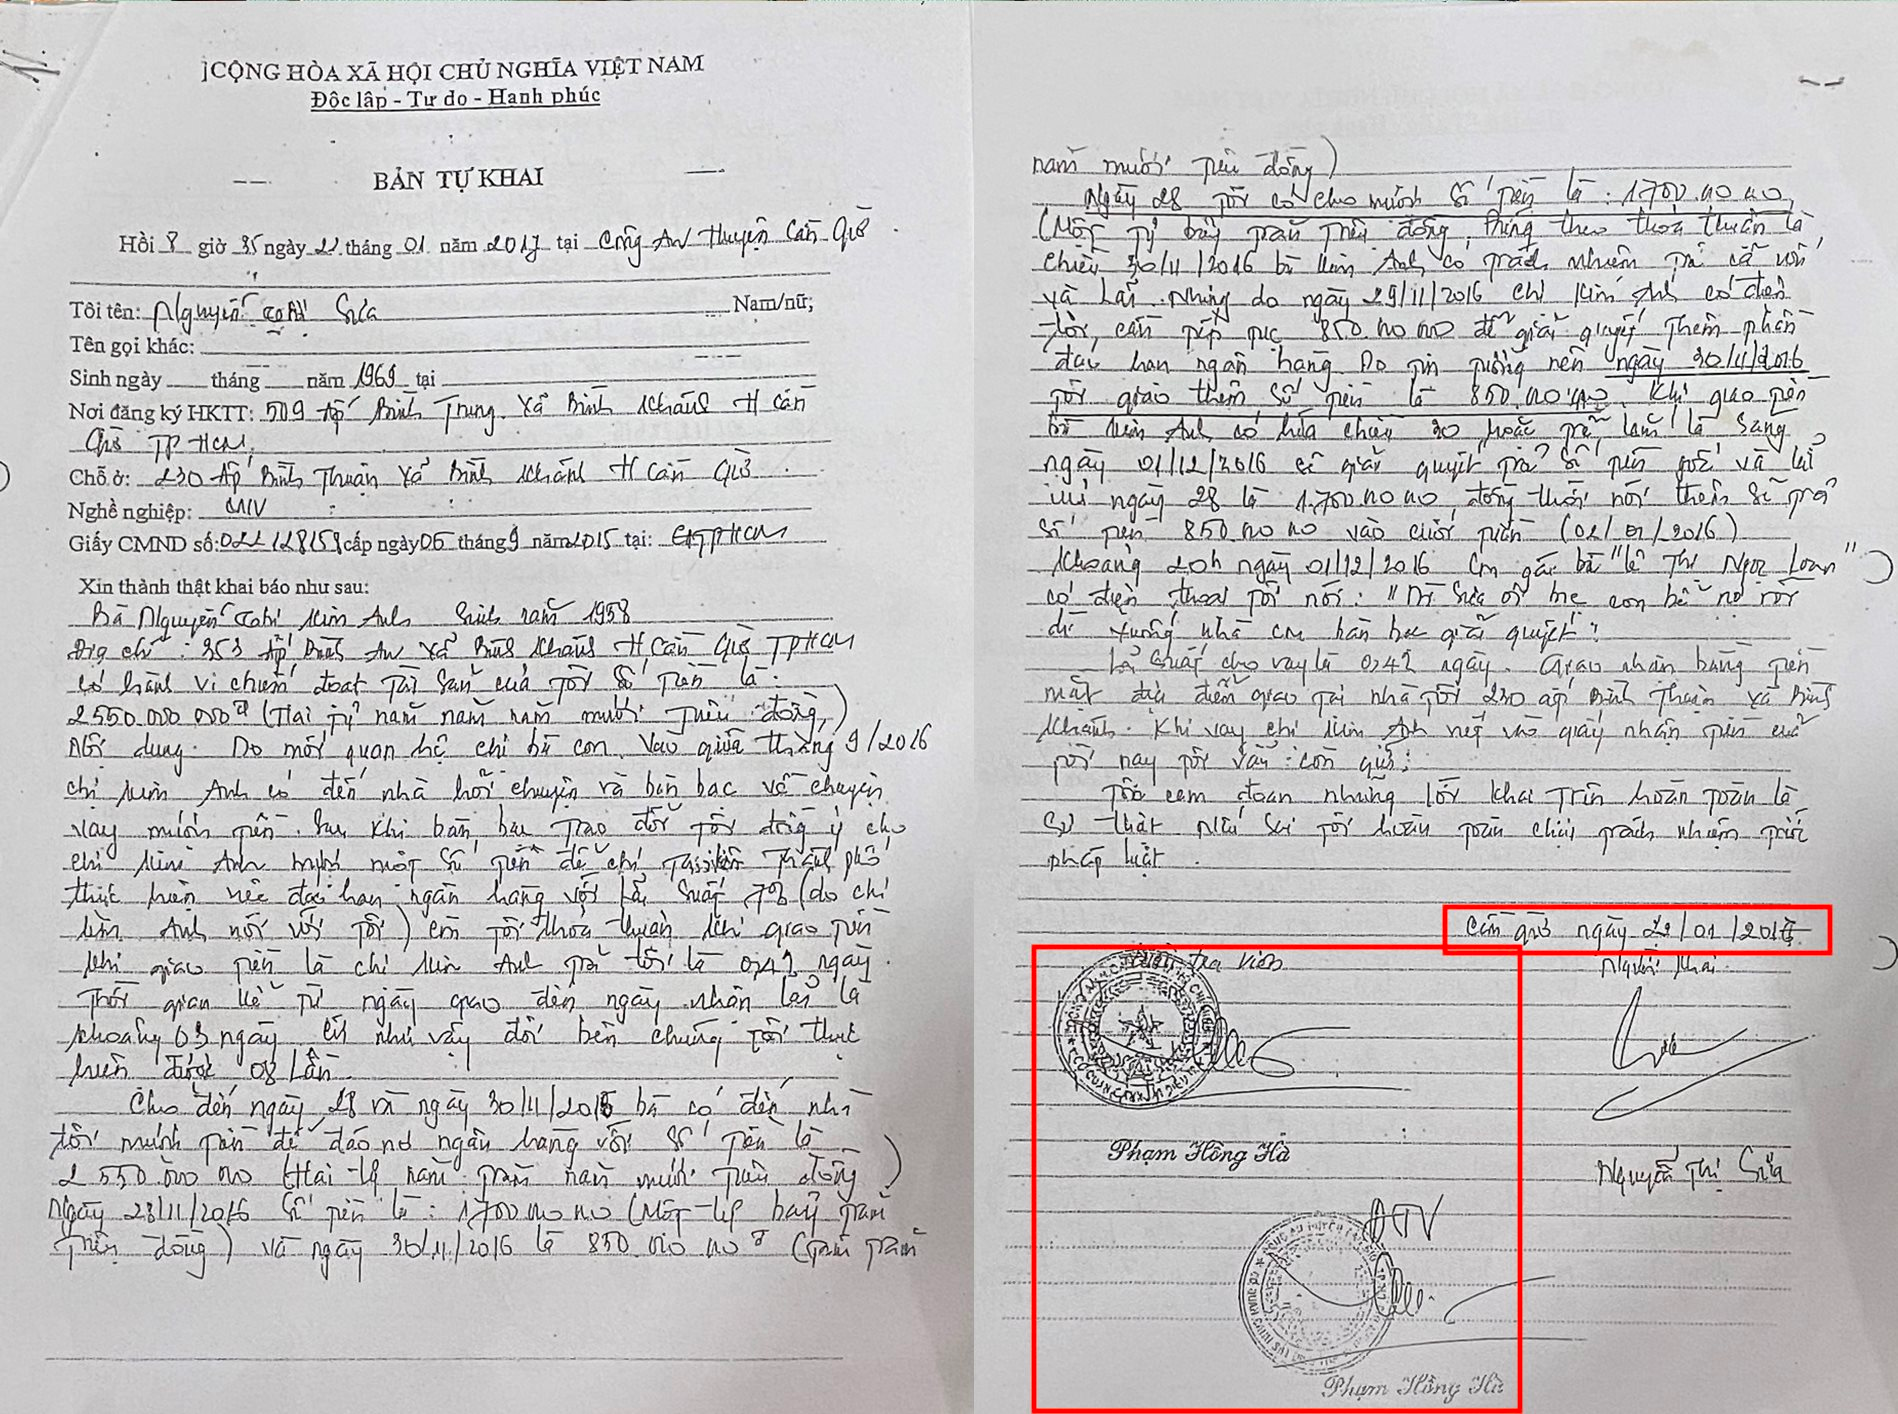 CỘNG HÒA XÃ HỘI CHỦ NGHĨA VIỆT NAM
Độc lập - Tự do - Hạnh phúc
BẢN TỰ KHAI
Hồi 8 giờ 35 ngày 22 tháng 01 năm 2017 tại Công An Huyện Cần Giờ
Tôi tên: Nguyễn Thị Sứa Nam/nữ;
Tên gọi khác:
Sinh ngày tháng năm 1969 tại
Nơi đăng ký HKTT: 509 Ấp Bình Trung Xã Bình Khánh H Cần
Giờ TP HCM
Chỗ ở: 230 Ấp Bình Thuận Xã Bình Khánh H Cần Giờ
Nghề nghiệp:
Giấy CMND số: cấp ngày 05 tháng 9 năm 2015 tại: CATPHCM
Xin thành thật khai báo như sau:
Bà Nguyễn Thị Kim Anh Sinh năm 1958
Địa chỉ: 353 Ấp Bình An Xã Bình Khánh H Cần Giờ TPHCM
có hành vi chiếm đoạt tài sản của tôi số tiền là:
2550.000.000đ (Hai tỷ năm năm năm mươi triệu đồng)
Nội dung. Do mối quan hệ chị bà con. Vào giữa tháng 9/2016
chị Kim Anh có đến nhà hỏi chuyện và bàn bạc về chuyện
vay mượn tiền. Sau khi bàn bạc trao đổi tôi đồng ý cho
chị Kim Anh mượn một số tiền để chị thành phố
thực hiện việc đáo hạn ngân hàng với lãi suất 7% (do chị
Kim Anh nói với tôi) còn tôi thỏa thuận khi giao tiền
khi giao tiền là chị Kim Anh trả tôi là 0,42 ngày.
Thời gian kể từ ngày giao đến ngày nhận lại là
khoảng 03 ngày. Cứ như vậy đôi bên chúng tôi thực
hiện được 08 lần.
Cho đến ngày 28 và ngày 30/11/2016 bà có đến nhà
tôi mượn tiền để đáo nợ ngân hàng với số tiền là
2 550 000 000 (Hai tỷ năm trăm năm mươi triệu đồng)
Ngày 28/11/2016 số tiền là: 1700 000 000 (Một tỷ bảy trăm
triệu đồng) và ngày 30/11/2016 là 850.000.000đ (tám trăm
năm mươi triệu đồng)
Ngày 28 tôi có cho mượn số tiền là: 1.700.000.000,
(Một tỷ bảy trăm triệu đồng, Đúng theo thỏa thuận là
chiều 30/11/2016 bà Kim Anh có trách nhiệm trả cả vốn
và lãi. Nhưng do ngày 29/11/2016 chị Kim Anh có điện
tôi, cần tiếp tục 850.000.000 để giải quyết thêm phần
đáo hạn ngân hàng. Do tin tưởng nên ngày 30/11/2016
tôi giao thêm số tiền là 850.000.000. Khi giao tiền
bà Kim Anh có hứa chiều 30 hoặc trễ lắm là sáng
ngày 01/12/2016 sẽ giải quyết trả số tiền gốc và lãi
ngày 28 là 1.700.000.000, đồng thời nói thêm sẽ trả
số tiền 850.000.000 vào cuối tuần
Khoảng 20h ngày 01/12/2016 em gái bà "Lê Thị Ngọc Loan"
có điện thoại tôi nói: "Dì Sứa ơi mẹ con bể nợ rồi
dì xuống nhà em bàn bạc giải quyết!
Lãi suất cho vay là 0,42 ngày. Giao nhận bằng tiền
mặt địa điểm giao tại nhà tôi 230 ấp Bình Thuận xã Bình
Khánh. Khi vay chị Kim Anh viết vào giấy nhận tiền của
tôi nay tôi vẫn còn giữ.
Tôi cam đoan những lời khai trên hoàn toàn là
sự thật. Nếu sai tôi hoàn toàn chịu trách nhiệm trước
pháp luật.
Cần giờ ngày 22/01/2017
Điều tra viên
Người khai
Phạm Hồng Hà
Nguyễn Thị Sứa
ĐTV
Phạm Hồng Hà